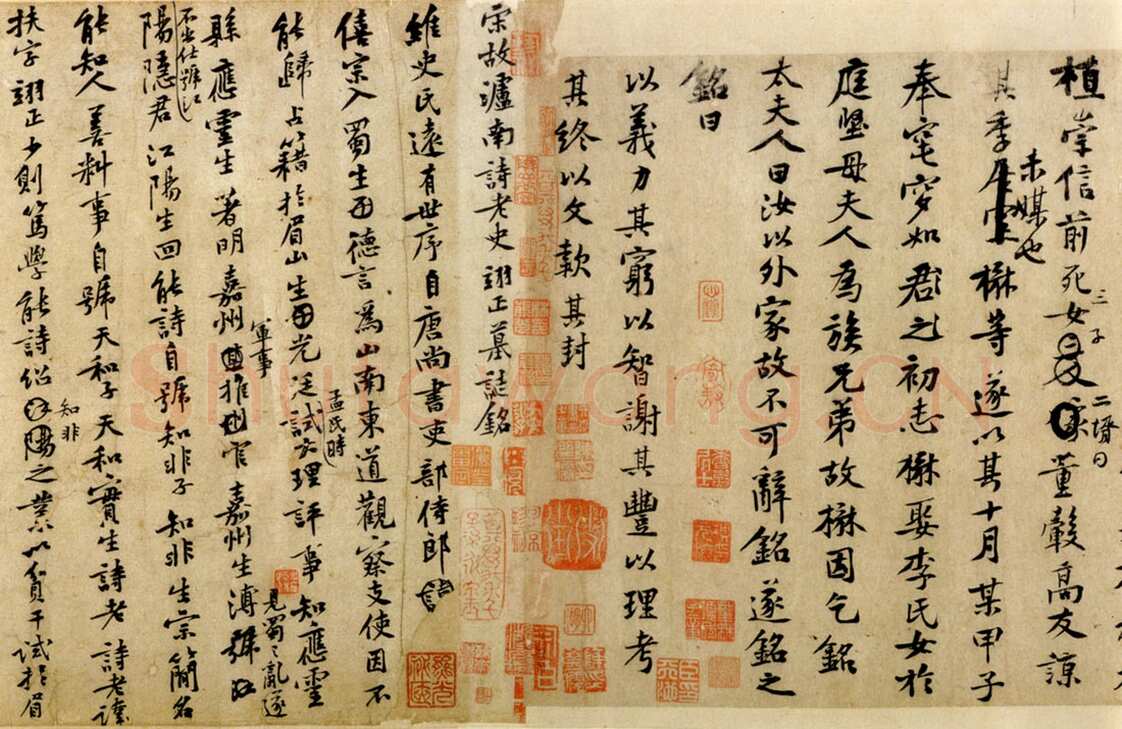 植崇信前死女三子二壻曰董觳高友諒
其季未媒也楙等遂以其十月某甲子
奉窀穸如君之初志楙娶李氏女於
庭堅母夫人為族兄弟故楙因乞銘
太夫人曰汝以外家故不可辭銘遂銘之
銘曰
以義力其窮以智謝其豐以理考
其終以文款其封
宋故瀘南詩老史翊正墓誌銘
維史氏遠有世序自唐尚書吏部侍郎
僖宗入蜀生德言為山南東道觀察支使因不
能歸占籍於眉山生光廷孟氏時試大理評事知應靈
縣應靈生著明嘉州軍事推官嘉州生溥見蜀亂遂不仕號江
陽隱君江陽生回能詩自號知非子知非生宗簡名
能知人善料事自號天和子天和實生詩老詩老諱
扶字翊正少則篤學能詩紹知非之業以貧干試於眉